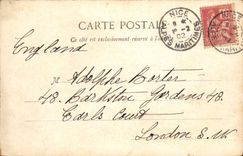 CARTE POSTALE
Ce côté est exclusivement réservé à l'adresse
NICE
ALPES MARITIMES
England
Adolphe Borter
48. Barkston Gardens 48.
Earls Court
London S.W